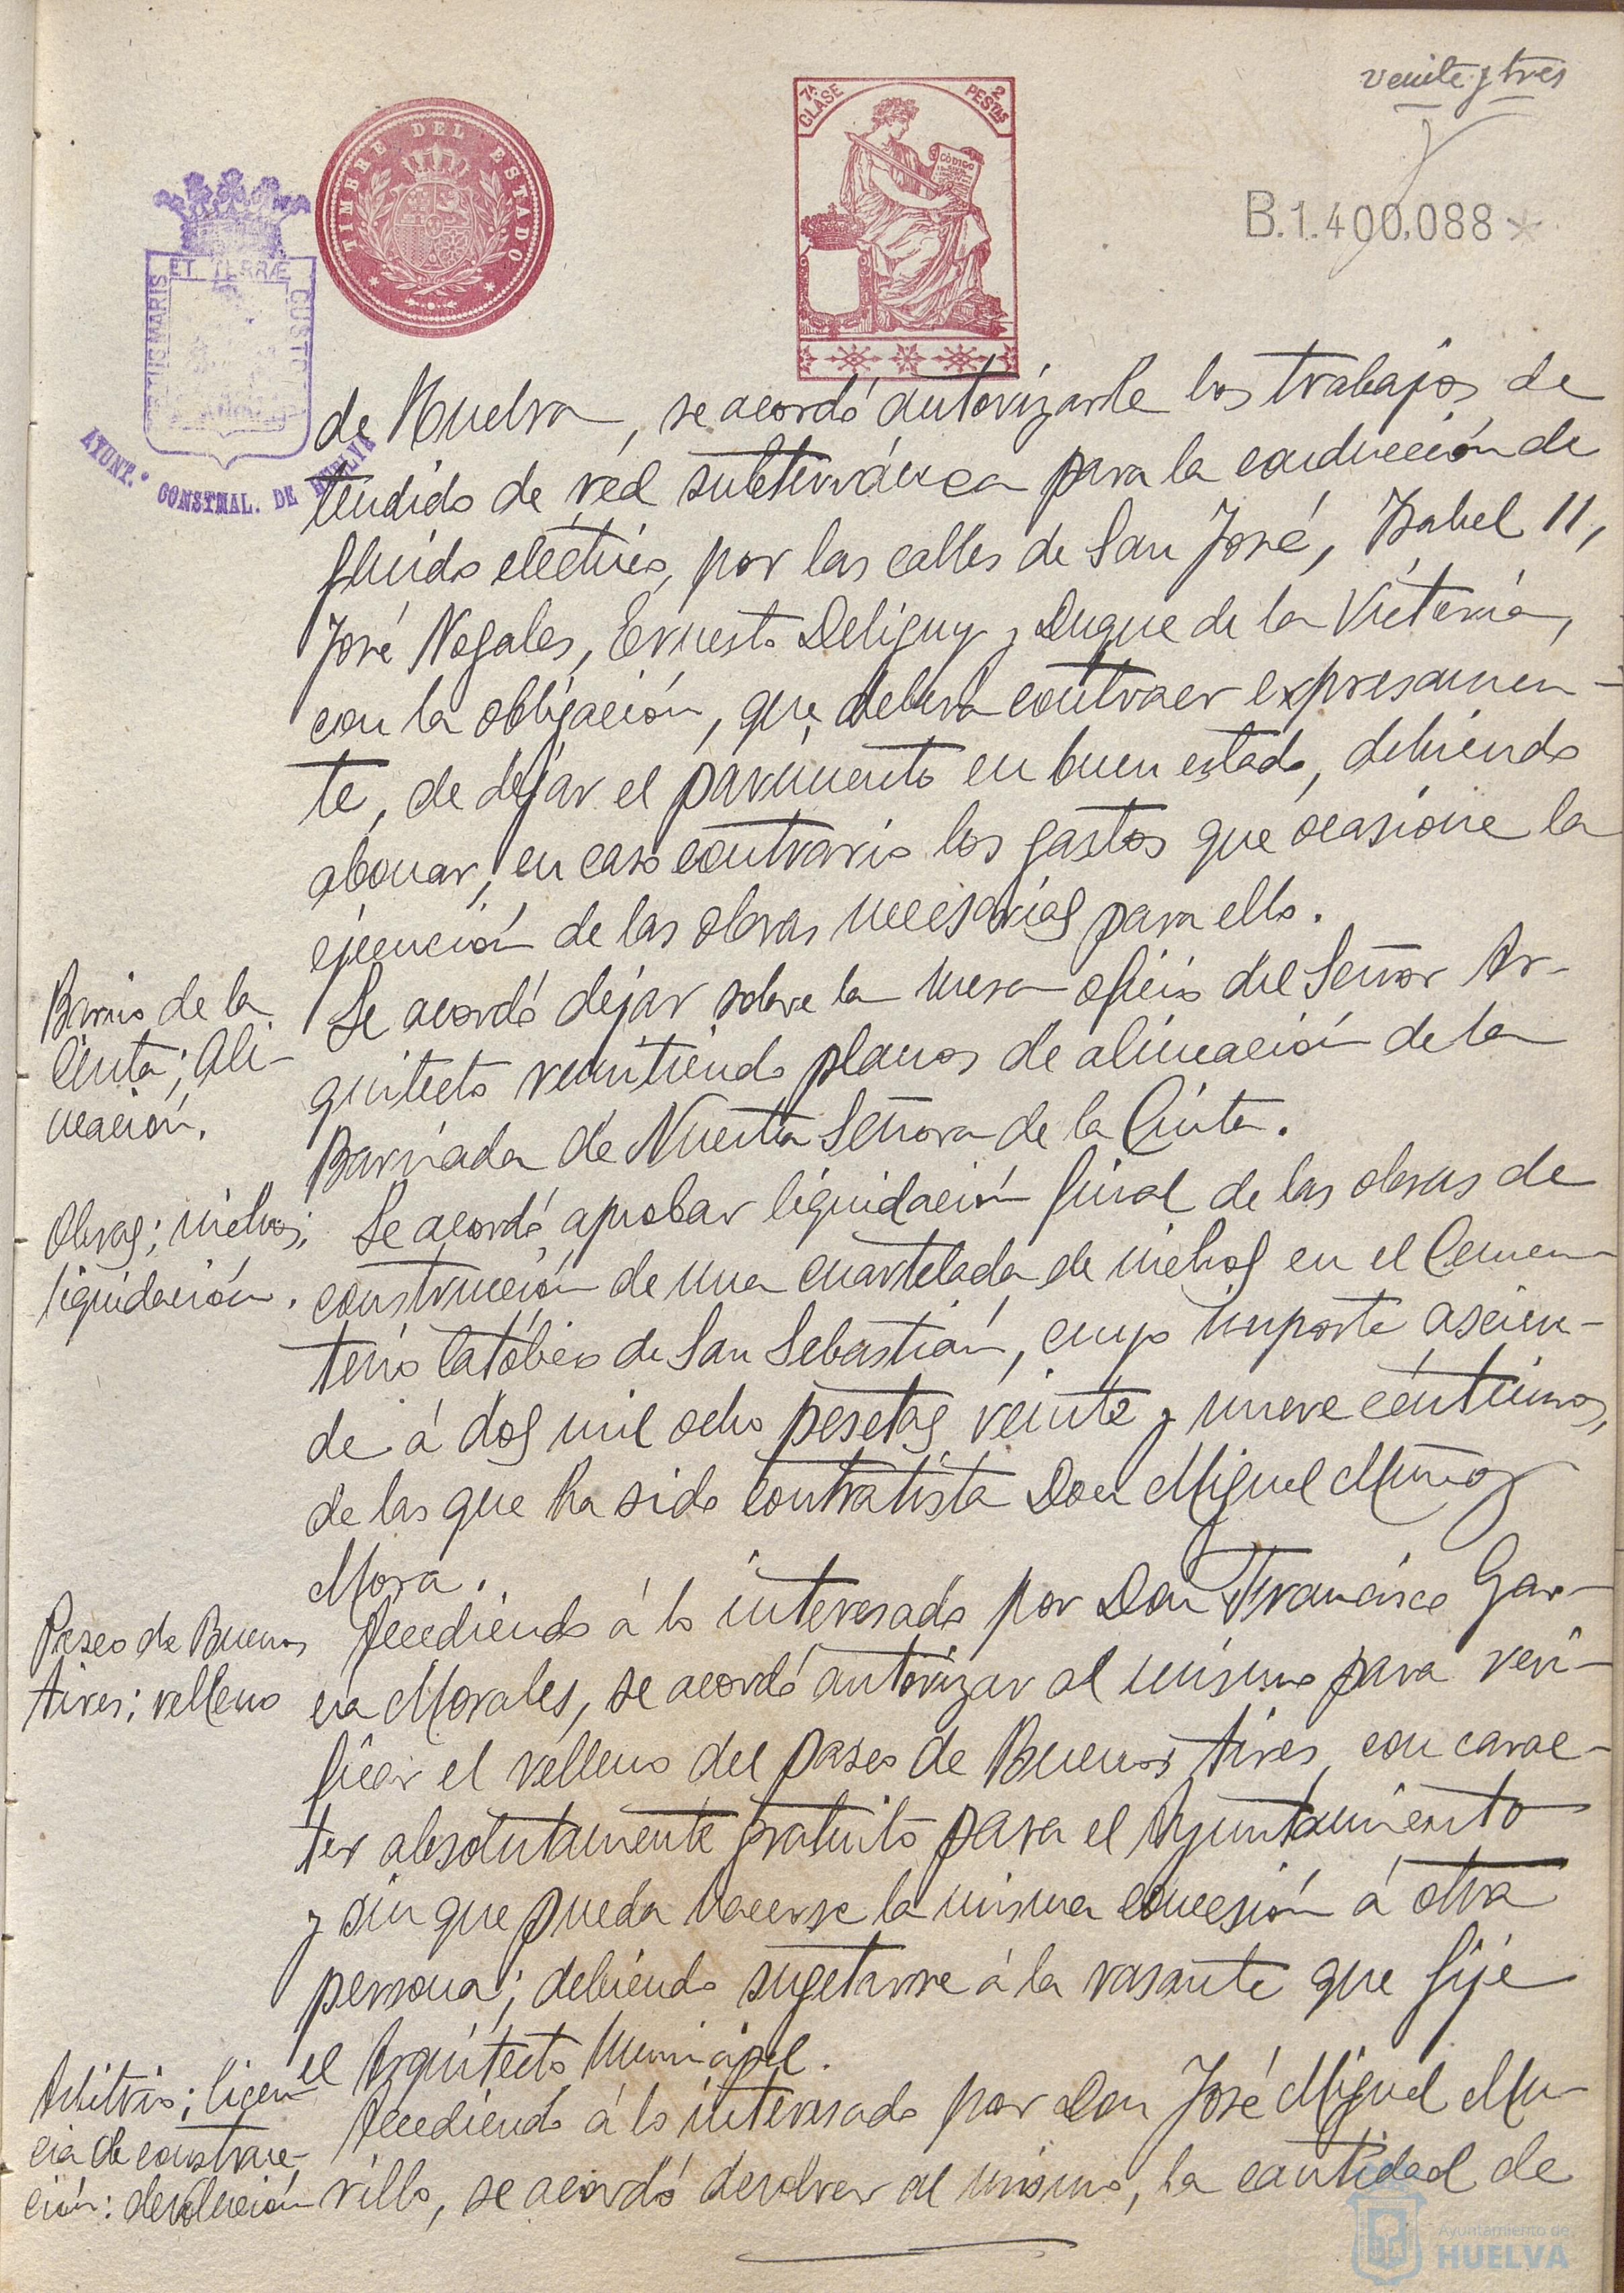 veinte y tres
7ª CLASE
2 PESTAS
TIMBRE DEL ESTADO
CÓDIGO
B.1.400,088
ET TERRÆ
MARIS
CUSTO
AYUNT.º CONSTNAL. DE HUELVA
de Huelva, se acordó autorizarle los trabajos de
tendido de red subterránea para la conducción de
fluido eléctrico, por las calles de San José, Isabel II,
José Nogales, Ernesto Deligny y Duque de la Victoria,
con la obligación, que deberá contraer expresamen-
te, de dejar el pavimento en buen estado, debiendo
abonar, en caso contrario los gastos que ocasione la
ejecución de las obras necesarias para ello.
Barrio de la
Cinta; ali-
neación.
Se acordó dejar sobre la mesa oficio del Señor Ar-
quitecto remitiendo planos de alineación de la
Barriada de Nuestra Señora de la Cinta.
Obras; nichos;
liquidación.
Se acordó aprobar liquidación final de las obras de
construcción de una cuartelada de nichos en el Cemen-
terio Católico de San Sebastián, cuyo importe ascien-
de á dos mil ocho pesetas veinte y nueve céntimos,
de las que ha sido contratista Don Miguel Muñoz
Mora.
Paseo de Buenos
Aires; relleno
Accediendo á lo interesado por Don Francisco Gar-
cía Morales, se acordó autorizar al mismo para veri-
ficar el relleno del paseo de Buenos Aires, con carac-
ter absolutamente gratuito para el Ayuntamiento
y sin que pueda hacerse la misma concesión á otra
persona; debiendo sugetarse á la rasante que fije
el Arquitecto Municipal.
Arbitrio; licen-
cia de construc-
ción: devolución
Accediendo á lo interesado por Don José Miguel Mu-
rillo, se acordó devolver al mismo, la cantidad de
Ayuntamiento de
HUELVA